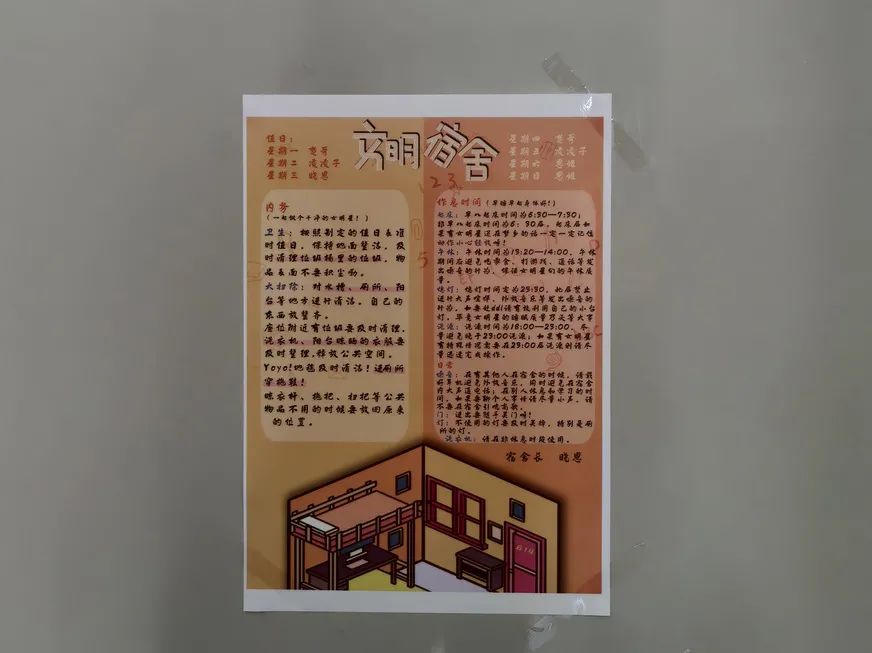 文明宿舍
值日：
星期一 楚哥
星期二 凌凌子
星期三 晓恩
星期四 楚哥
星期五 凌凌子
星期六 思姐
星期日 思姐
内务
（一起做个干净的女明星！）
卫生：按照制定的值日表准
时值日，保持地面整洁，及
时清理垃圾桶里的垃圾，物
品表面不要积尘勒。
大扫除：对水槽、厕所、阳
台等地方进行清洁。自己的
东西放整齐。
座位附近有垃圾要及时清理，
洗衣机、阳台晾晒的衣服要
及时整理，释放公共空间。
Yoyo！地毯及时清洁！进厕所
穿拖鞋！
晾衣杆、拖把、扫把等公共
物品不用的时候要放回原来
的位置。
作息时间（早睡早起身体好！）
起床：早八起床时间为6:30—7:30；
非早八起床时间为6：30后，起床后如
果有女明星还在梦乡的话一定一定记住
动作小心轻放呀！
午休：午休时间为13:20—14:00，午休
期间后避免吃零食、打游戏、通话等发
出噪音的行为，保证女明星们的午休质
量。
熄灯：熄灯时间定为23:30，此后禁止
进行大声喧哗、外放音乐等发出噪音的
行为，如要赶ddl请有效利用自己的小台
灯，毕竟女明星的睡眠质量乃天等大事
洗澡：洗澡时间为18:00—23:00，尽
量避免晚于23:00洗澡；如果有女明星
有特殊情况需要在23:00后洗澡则请尽
量迅速完成操作。
日常
噪音：在有其他人在宿舍的时候，请戴
好耳机避免外放音乐，同时避免在宿舍
内大声通电话；在别人休息和学习的时
间，如果要聊个人事情请尽量小声，请
不要在宿舍引吭高歌。
门：进出要随手关门呀！
灯：不使用的灯要及时关掉，特别是厕
所的灯。
洗衣机：请在非休息时段使用。
宿舍长 晓恩